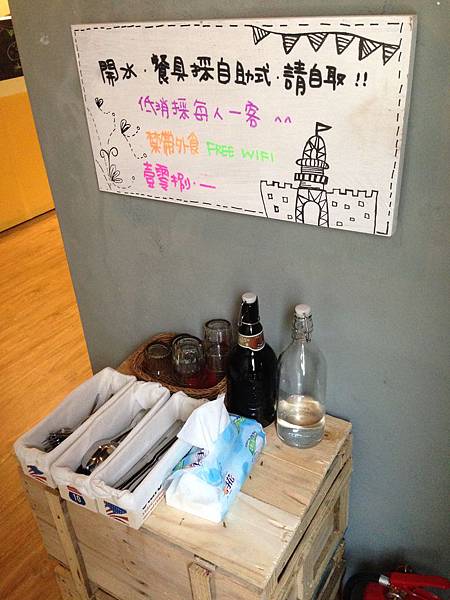 開水.餐具採自助式.請自取!!
低消採每人一客 ^^
禁帶外食 FREE WIFI
壹零捌.一
10